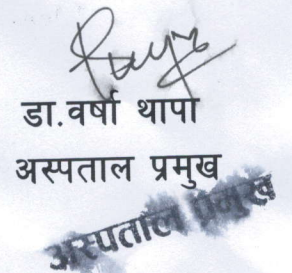 डा.वर्षा थापा
अस्पताल प्रमुख
अस्पताल प्रमुख